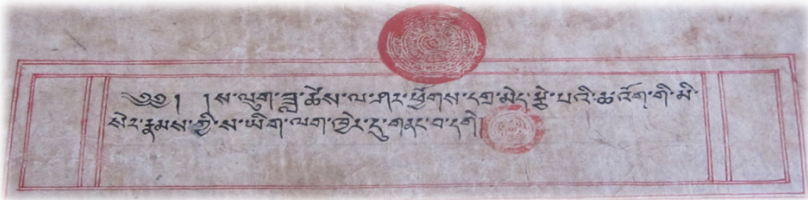 ༄༅། །ས་ལུག་ཟླ་ཚེས་ལ་ཤར་ཕྱོགས་དགྲ་མེད་རྩེ་པའི་ཆ་འོག་གི་མི་
སེར་རྣམས་ཀྱི་ས་ཡིག་ལག་ཁྱེར་དུ་གནང་བ་དགེ།